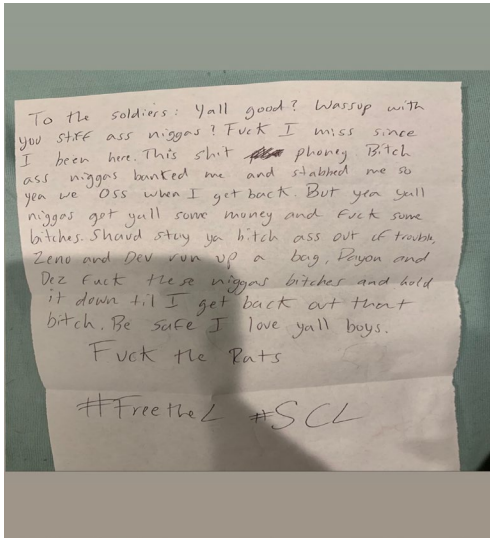 To the soldiers: Yall good? Wassup with
you stiff ass niggas? Fuck I miss since
I been here. This shit phoney Bitch
ass niggas banked me and stabbed me so
yea we oss when I get back. But yea yall
niggas get yall some money and fuck some
bitches. Shaud stay ya bitch ass out of trouble,
Zeno and Dev run up a bag, Dayon and
Dez fuck these niggas bitches and hold
it down til I get back out that
bitch. Be safe I love yall boys.
Fuck the Rats
#FreetheL #SCL